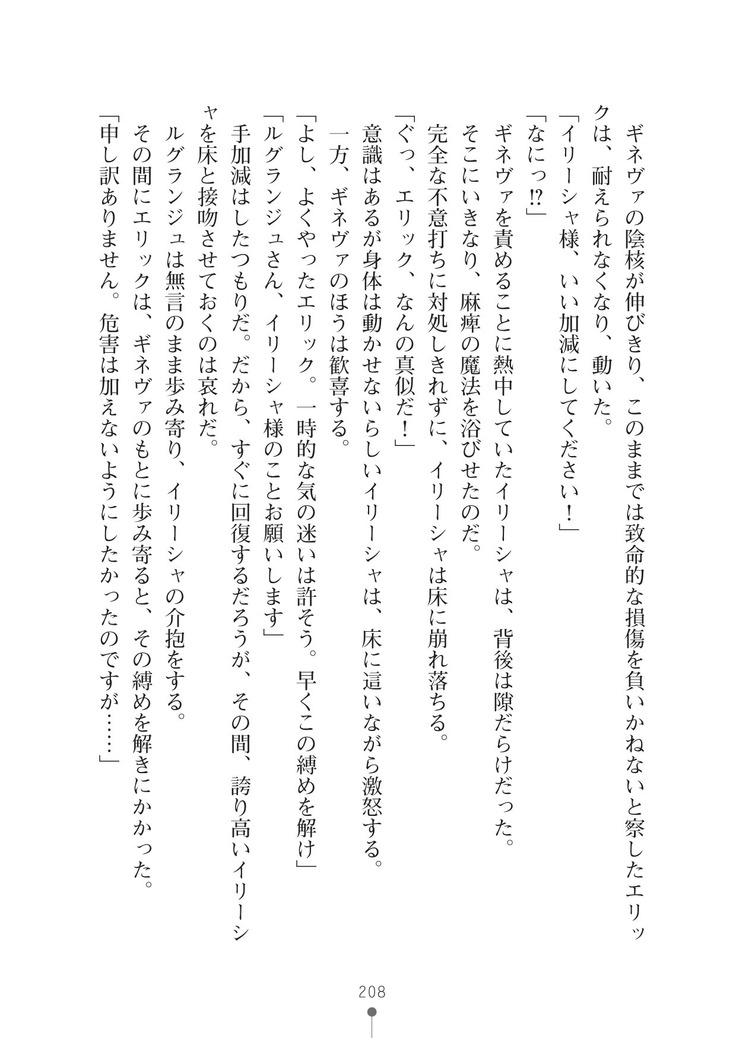 ギネヴァの陰核が伸びきり、このままでは致命的な損傷を負いかねないと察したエリッ
クは、耐えられなくなり、動いた。
「イリーシャ様、いい加減にしてください！」
「なにっ!?」
　ギネヴァを責めることに熱中していたイリーシャは、背後は隙だらけだった。
　そこにいきなり、麻痺の魔法を浴びせたのだ。
　完全な不意打ちに対処しきれずに、イリーシャは床に崩れ落ちる。
「ぐっ、エリック、なんの真似だ！」
　意識はあるが身体は動かせないらしいイリーシャは、床に這いながら激怒する。
　一方、ギネヴァのほうは歓喜する。
「よし、よくやったエリック。一時的な気の迷いは許そう。早くこの縛めを解け」
「ルグランジュさん、イリーシャ様のことお願いします」
　手加減はしたつもりだ。だから、すぐに回復するだろうが、その間、誇り高いイリーシ
ャを床と接吻させておくのは哀れだ。
　ルグランジュは無言のまま歩み寄り、イリーシャの介抱をする。
　その間にエリックは、ギネヴァのもとに歩み寄ると、その縛めを解きにかかった。
「申し訳ありません。危害は加えないようにしたかったのですが……」
208